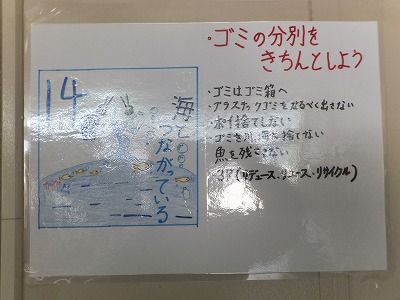 ・ゴミの分別を
きちんとしよう
14
海と
つながっている
・ゴミはゴミ箱へ
・プラスチックゴミをなるべく出さない
・ポイ捨てしない
・ゴミを川、海に捨てない
魚を残さない
・3R(リデュース、リユース・リサイクル)